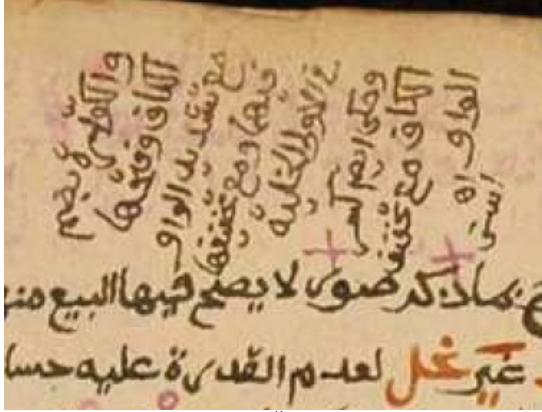 والكوارة بضم
الكاف وفتحها
مع تشديد الواو
فيها ومع تخفيفها
في الاولى الخلية
وحكى ايضا كسر
الكاف مع تخفيف
الواو اه
اسنى
بما ذكر صور لا يصح فيها البيع
غير نحل لعدم القدرة عليه حسا